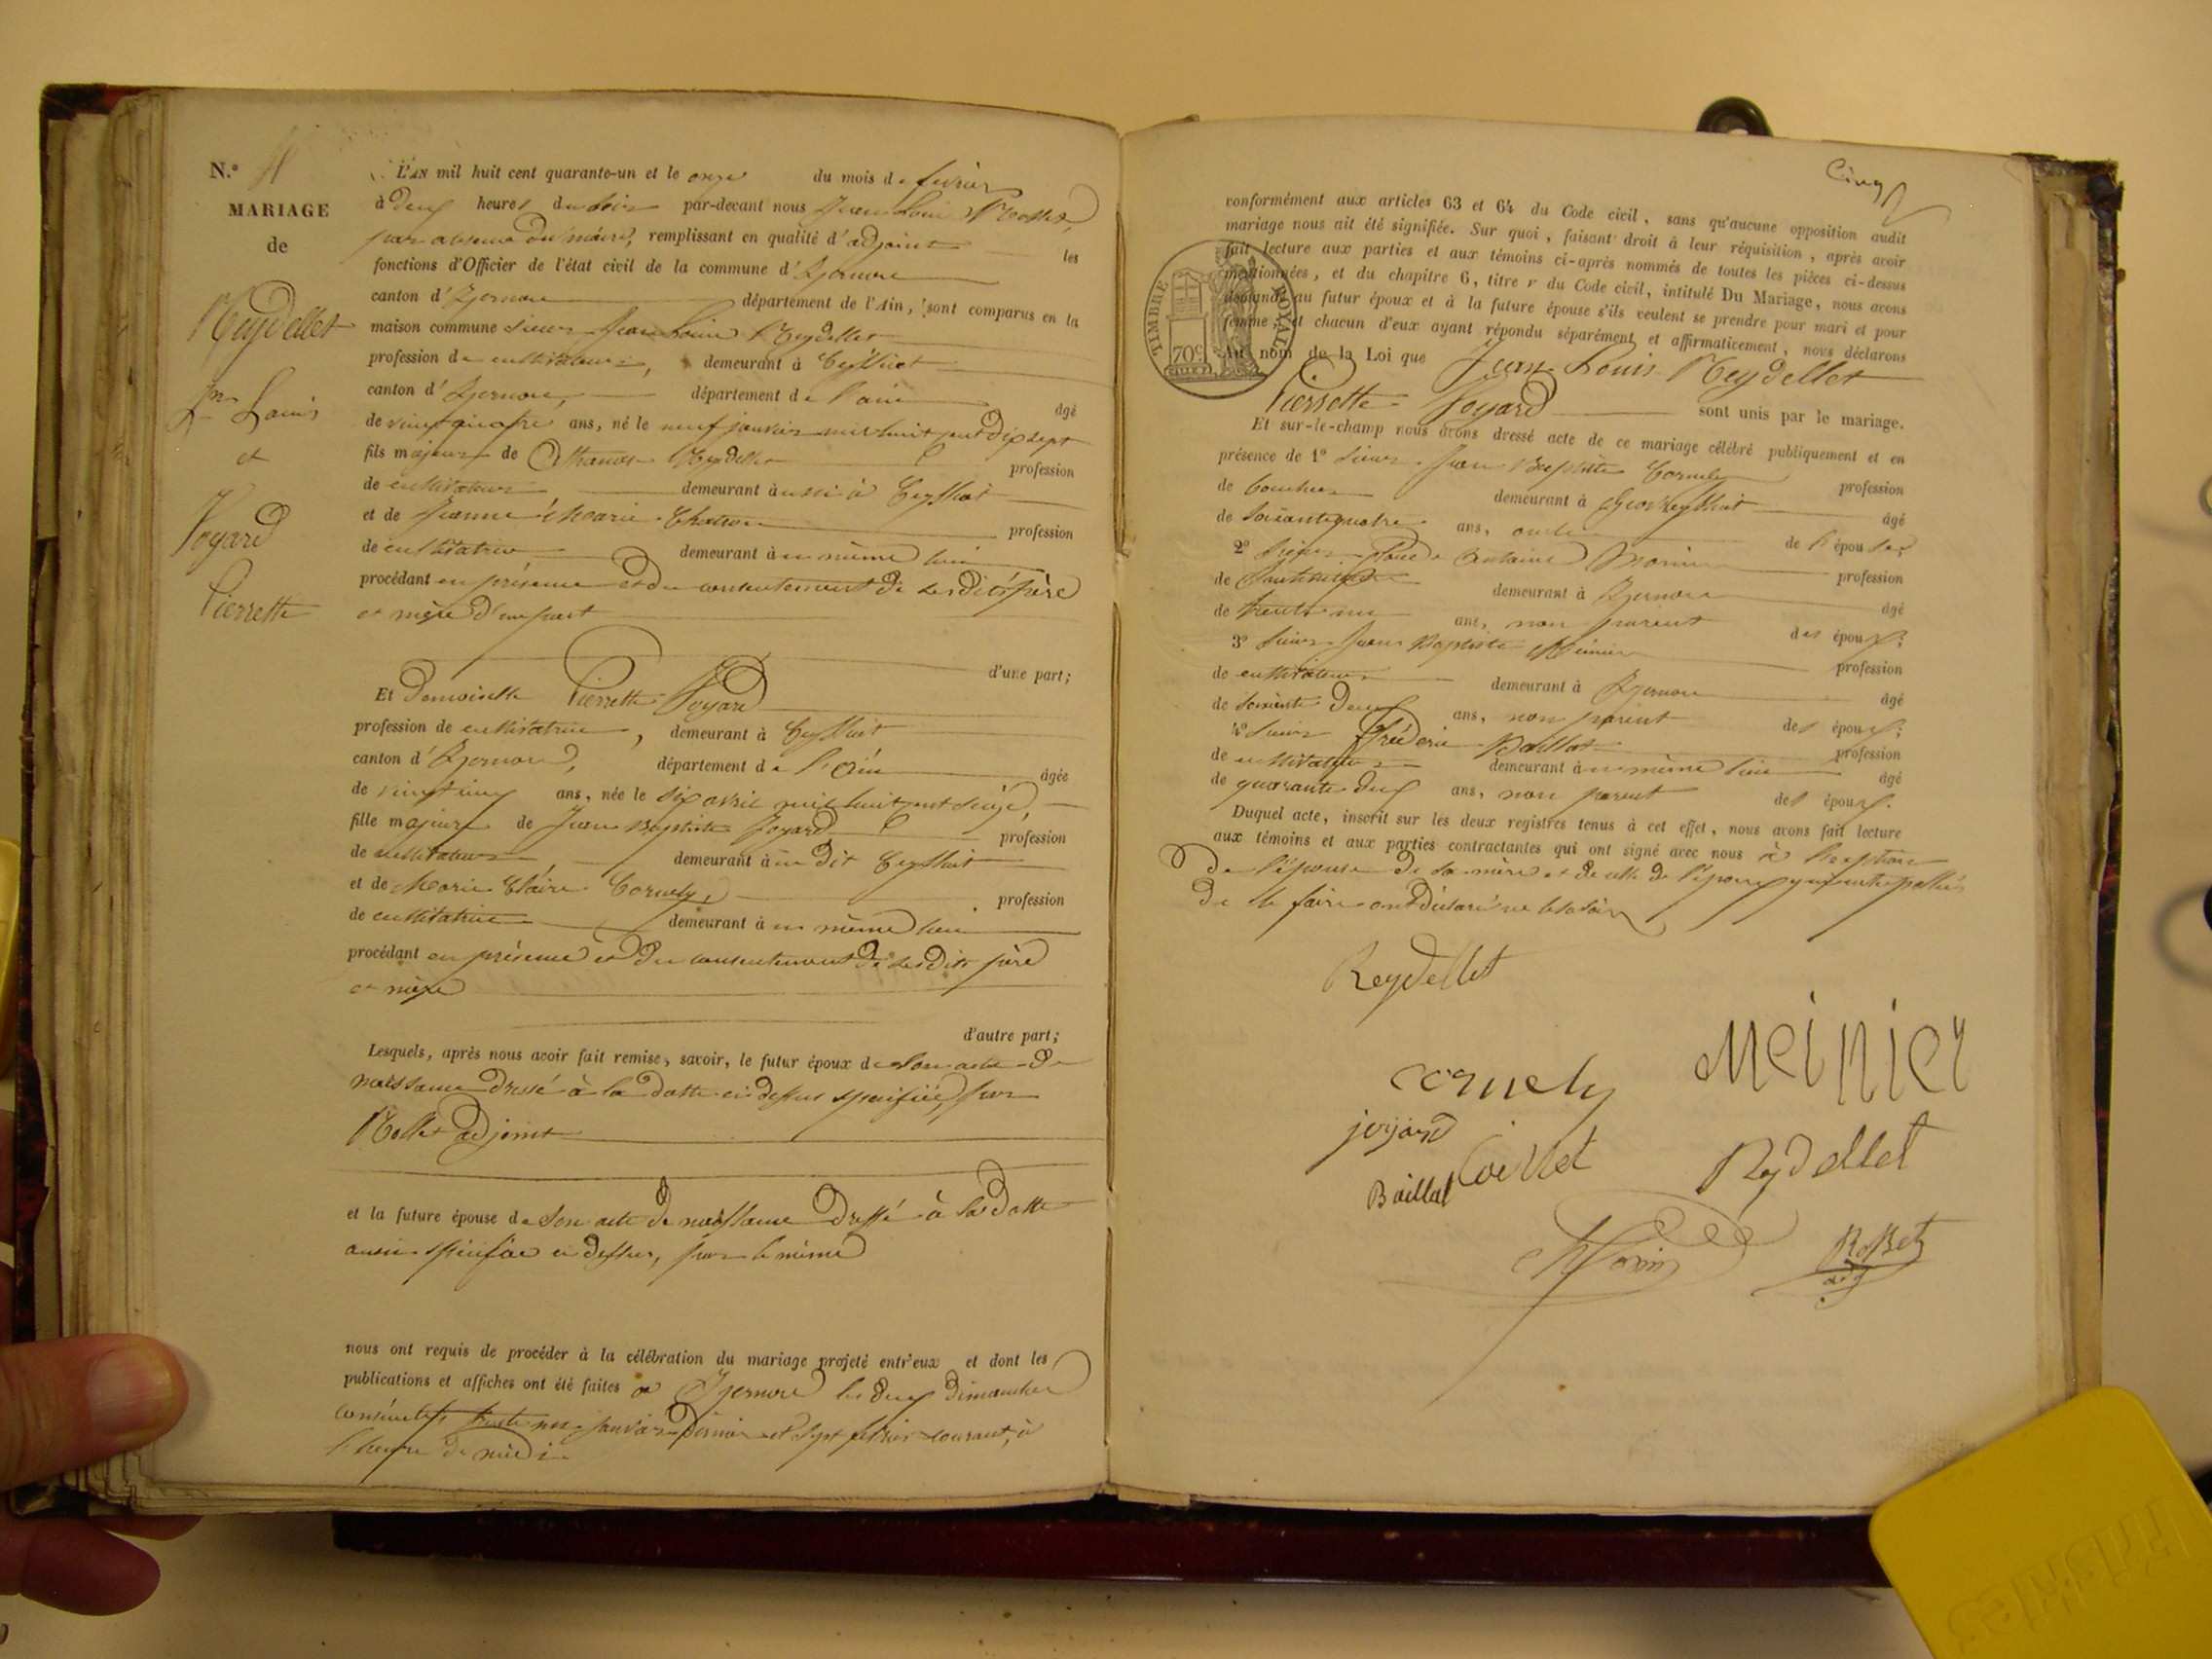 N.º 4
MARIAGE
de
Reydellet
Jn Louis
et
Joyard
Pierrette
L'AN mil huit cent quarante-un et le onze du mois de février
à deux heures du soir par-devant nous Jean Louis Rosset,
par absence du maire, remplissant en qualité d'adjoint les
fonctions d'Officier de l'état civil de la commune d'Izernore
canton d'Izernore département de l'Ain, sont comparus en la
maison commune sieur Jean Louis Reydellet
profession de cultivateur, demeurant à Ceyssiat
canton d'Izernore, département de l'ain âgé
de vingt quatre ans, né le neuf janvier mil huit cent dix sept
fils majeur de Athanase Reydellet profession
de cultivateur demeurant aussi à Ceyssiat
et de Jeanne Marie Chatron profession
de cultivatrice demeurant au même lieu
procédant en présence et du consentement de ses dits père
et mère d'une part
d'une part;
Et Demoiselle Pierrette Joyard
profession de cultivatrice, demeurant à Ceyssiat
canton d'Izernore, département de l'Ain âgée
de vingt ans, née le six avril mil huit cent seize,
fille majeure de Jean Baptiste Joyard profession
de cultivateur, demeurant au dit Ceyssiat
et de Marie Claire Cornely, profession
de cultivatrice demeurant au même lieu
procédant en présence et du consentement de ses dits père
et mère
d'autre part;
Lesquels, après nous avoir fait remise, savoir, le futur époux de son acte de
naissance dressé à la datte ci dessus spécifiée, par
Rosset adjoint
et la future épouse de son acte de naissance dressé à la datte
aussi spécifiée ci dessus, par le même
nous ont requis de procéder à la célébration du mariage projeté entr'eux et dont les
publications et affiches ont été faites à Izernore les deux dimanches
consécutifs trente un janvier dernier et sept février courant, à
l'heure de midi
Cinq
TIMBRE ROYAL
70c
conformément aux articles 63 et 64 du Code civil, sans qu'aucune opposition audit
mariage nous ait été signifiée. Sur quoi, faisant droit à leur réquisition, après avoir
fait lecture aux parties et aux témoins ci-après nommés de toutes les pièces ci-dessus
mentionnées, et du chapitre 6, titre v du Code civil, intitulé Du Mariage, nous avons
demandé au futur époux et à la future épouse s'ils veulent se prendre pour mari et pour
femme; et chacun d'eux ayant répondu séparément et affirmativement, nous déclarons
Au nom de la Loi que Jean Louis Reydellet
Pierrette Joyard sont unis par le mariage.
Et sur-le-champ nous avons dressé acte de ce mariage célébré publiquement et en
présence de 1º sieur Jean Baptiste Cornely profession
de boucher demeurant à Geovreyssiat âgé
de soixante quatre ans, oncle de l'épouse
2º sieur Antoine Morin profession
de demeurant à Izernore âgé
de trente un ans, non parent des époux;
3º sieur Jean Baptiste Meinier profession
de cultivateur demeurant à Izernore âgé
de soixante deux ans, non parent des époux;
4º sieur Fréderic Baillat profession
de cultivateur demeurant au même lieu âgé
de quarante deux ans, non parent des époux.
Duquel acte, inscrit sur les deux registres tenus à cet effet, nous avons fait lecture
aux témoins et aux parties contractantes qui ont signé avec nous à l'exception
de l'épouse de sa mère et de celle de l'époux qui interpellés
de le faire ont déclaré ne le savoir
Reydellet
Meinier
cornely
joyard
Reydellet
Baillat
Morin
Rosset
adj